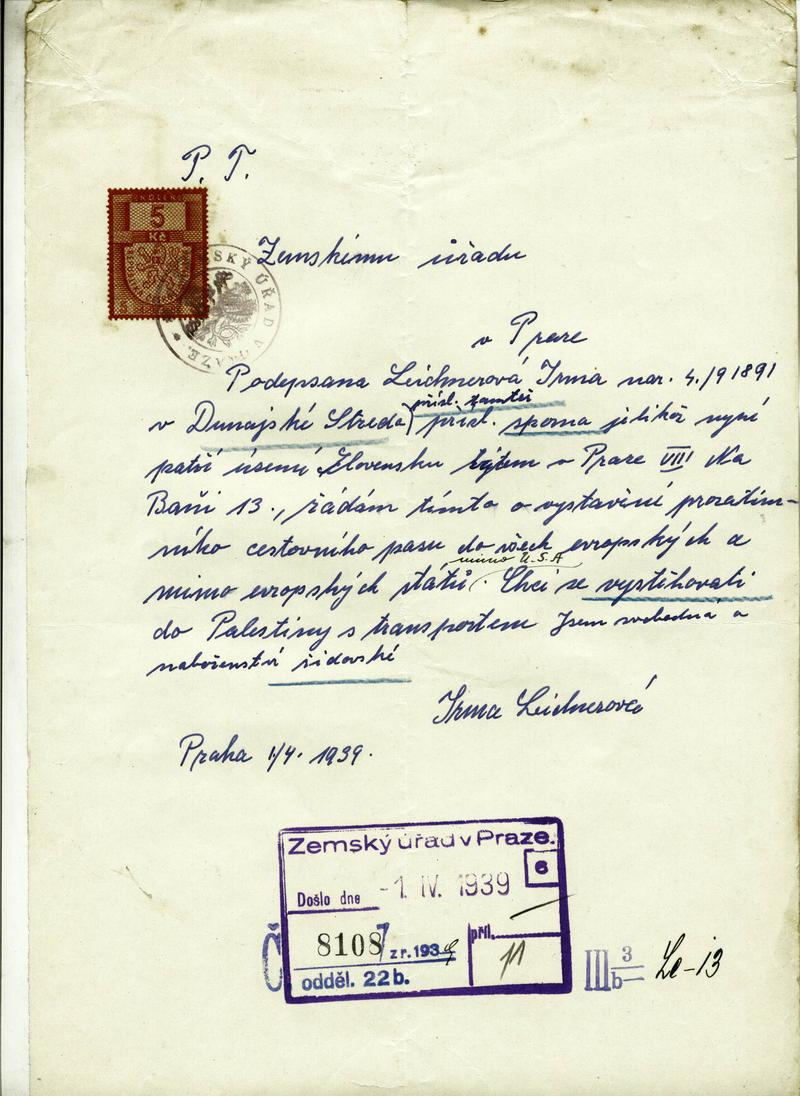 P. T.
5
Kč
Zemskému úřadu
ZEMSKÝ ÚŘAD V PRAZE.
v Praze
Podepsana Leichnerová Irma nar. 4./9 1891
přísl. tamtéž
v Dunajské Streda přísl. sporna jelikož nyní
patří území Slovensku bytem v Praze VIII Na
Baňi 13., žádám tímto o vystavění prozatím-
ního cestovního pasu do všech evropských a
mimo U.S.A
mimo evropských států. Chci se vystěhovati
do Palestiny s transportem Jsem svobodná a
naboženství židovské
Irma Leichnerová
Praha 1/4. 1939.
Zemský úřad v Praze.
6
Došlo dne -1. IV. 1939
Č 81087 z r. 1939 příl.
odděl. 22 b.
III 3 b Le-13